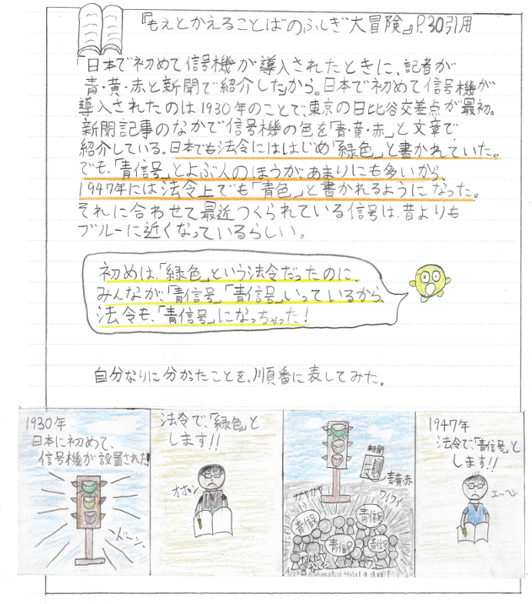 『もえとかえることばのふしぎ大冒険』P.30引用
「日本で初めて信号機が導入されたときに、記者が
青・黄・赤と新聞で紹介した」から。日本で初めて信号機が
導入されたのは1930年のことで、東京の日比谷交差点が最初。
新聞記事のなかで信号機の色を「青・黄・赤」と文章で
紹介している。日本でも法令にははじめ「緑色」と書かれていた。
でも、「青信号」とよぶ人のほうが、あまりにも多いから、
1947年には法令上でも「青色」と書かれるようになった。
それに合わせて最近つくられている信号は、昔よりも
ブルーに近くなっているらしい。
初めは、「緑色」という法令だったのに、
みんなが、「青信号」「青信号」いっているから、
法令も、「青信号」になっちゃった!
自分なりに分かったことを、順番に表してみた。
1930年
日本に初めて、
信号機が設置された!
ドーン、
法令で、「緑色」と
します!!
オホン
新聞
青黄赤
ザワザワ
ワイワイ
青信号
青信号
青信号
青信号
1947年
法令で「青信号」と
します!!
エッヘン